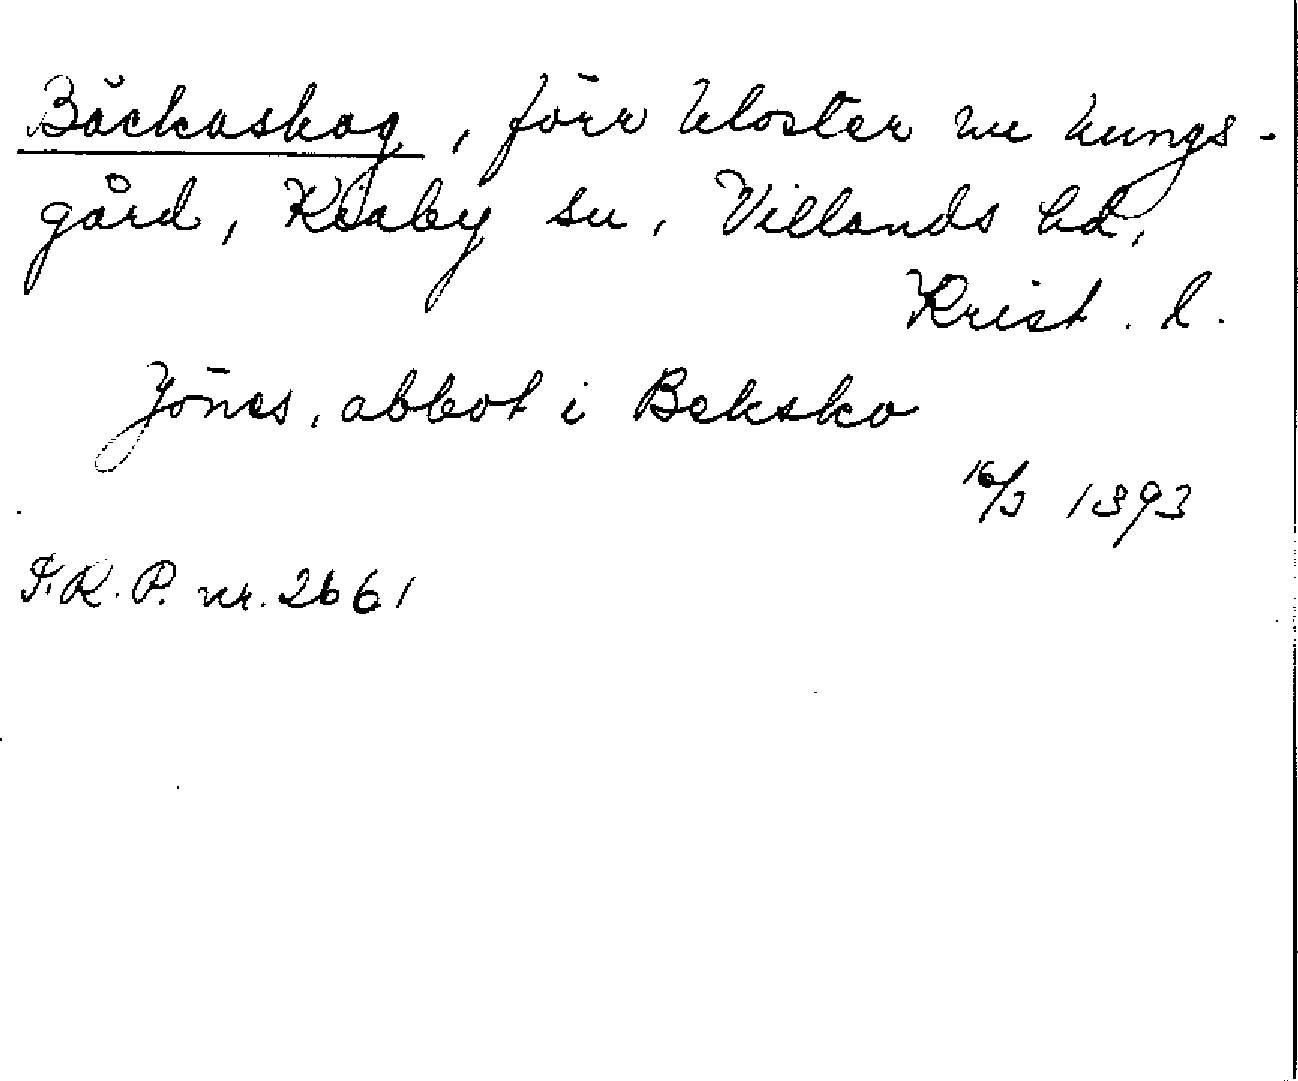 Bäckaskog, förr kloster nu kungs-
gård, Kiaby sn, Villands hd,
Krist. l.
Jönes, abbot i Beksko
16/3 1393
S.R.P. nr. 2661